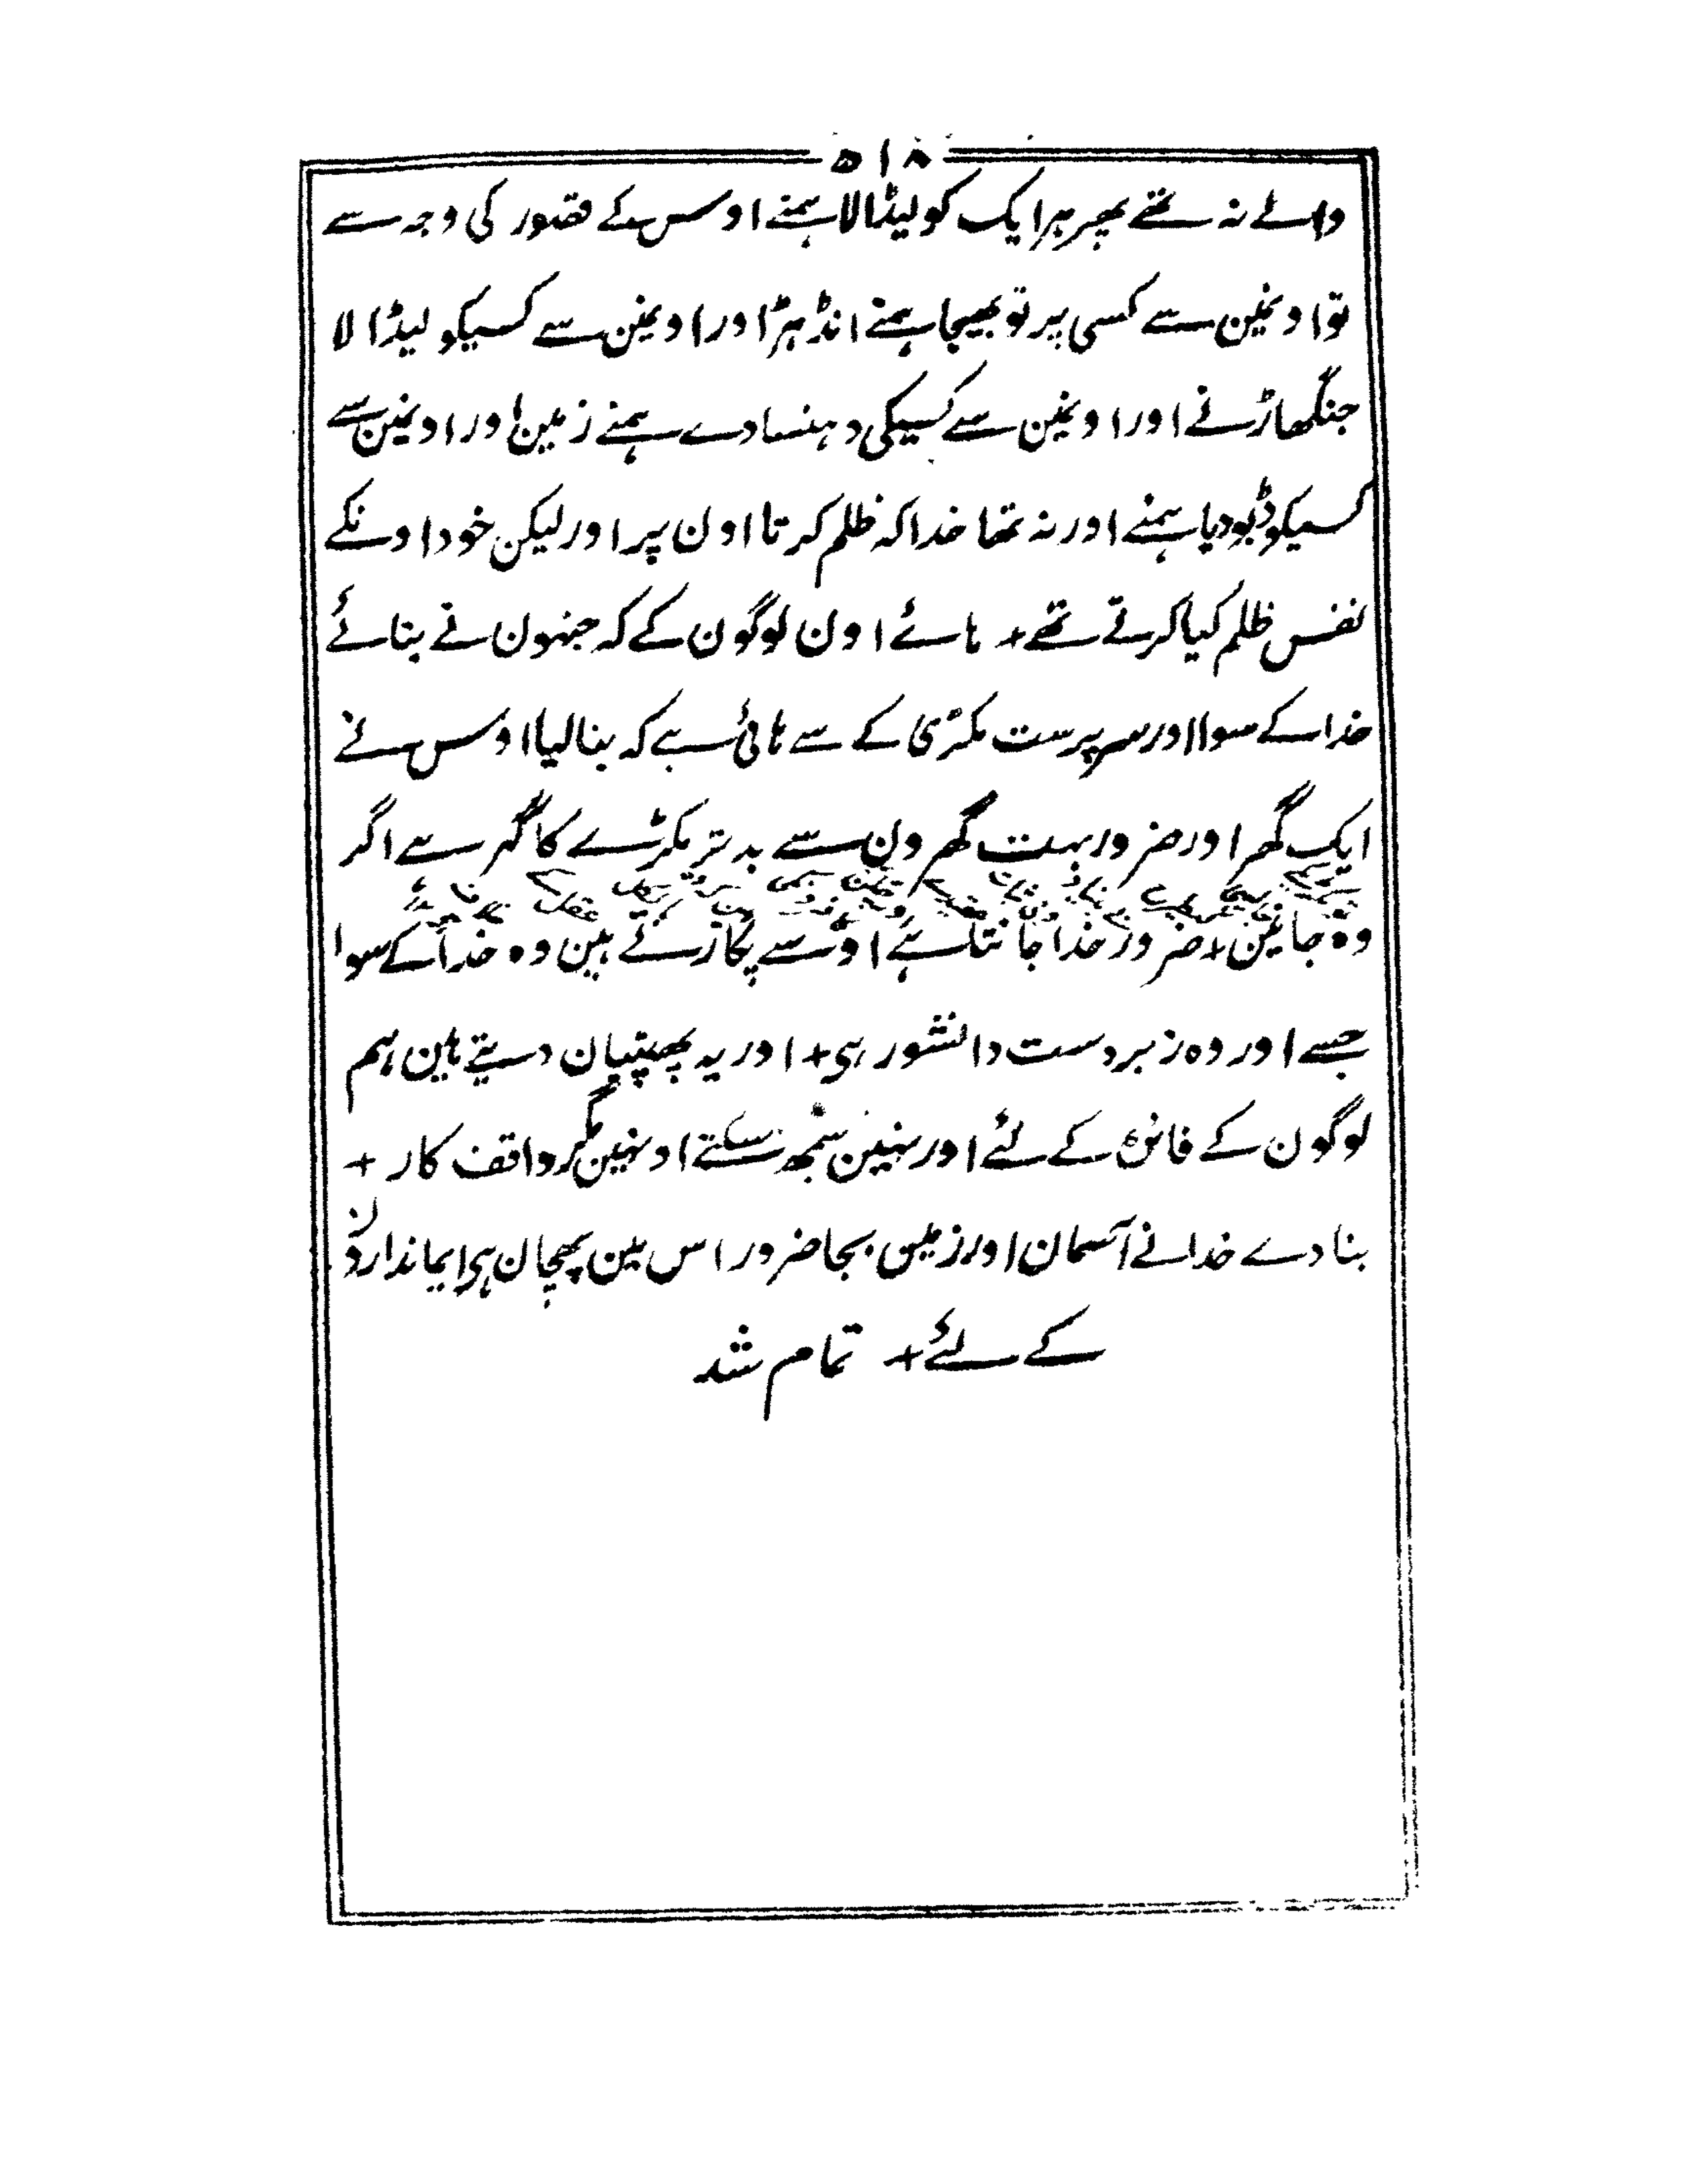 ۵۱۸
والے نہ تھے پھر ہر ایک کو لیڈالا ہمنے اوس کے قصور کی وجہ سے
تو اونمین سے کسی پر تو بھیجا ہمنے انڈہڑ اور اونمین سے کسیکو لیڈالا
چنگھاڑ نے اور اونمین سے کسیکی دہنسا دے ہمنے زمین اور اونمین سے
کسیکو ڈبو دیا ہمنے اور نہ تھا خدا کہ ظلم کرتا اون پر اور لیکن خود اونکے
نفس ظلم کیا کرتے تھے + ہائے اون لوگون کے کہ جنہون نے بنائے
خدا کے سوا اور سرپرست مکڑی کے سے ہائی ہے کہ بنا لیا اوس نے
ایک گھر اور ضرور بہت گھرون سے بدتر مکڑے کا گہر سے اگر
وہ جانین + ضرور خدا جانتا ہے اوسے پکارتے ہین وہ خدا کے سوا
جسے اور وہ زبردست دانشور ہی + اور یہ پھبتیان دیتے ہاین ہم
لوگون کے فائدہ کے لئے اور نہین سمجھ سکتے اونہین مگر واقف کار +
بنا دے خدا نے آسمان اور زمین بجا ضرور اس مین پہچان ہی ایماندارون
کے لئے + تمام شد